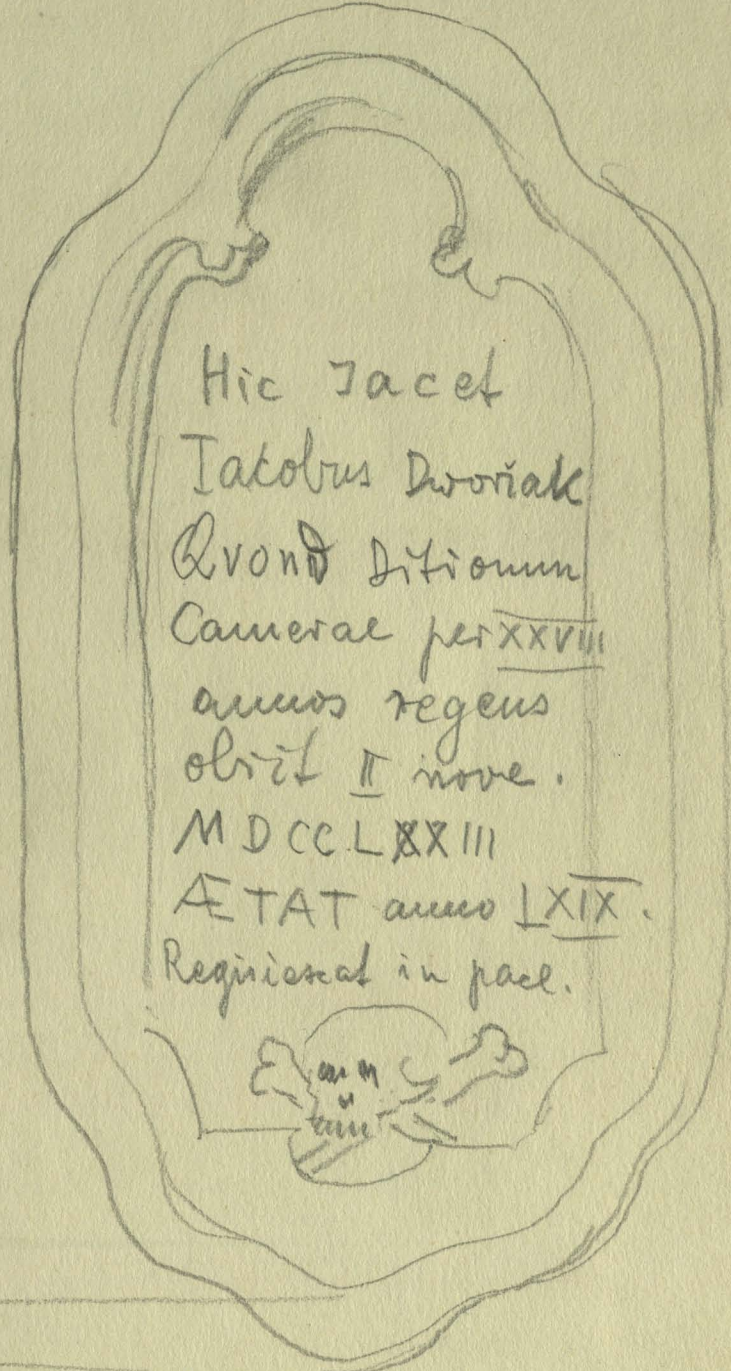 Hic Iacet
Iakobus Dworiak
QvonD Ditionum
Camerae per XXVIII
annos regens
obiit II nove.
MDCCLXXIII
ÆTAT anno LXIX.
Reqiuiescat in pace.